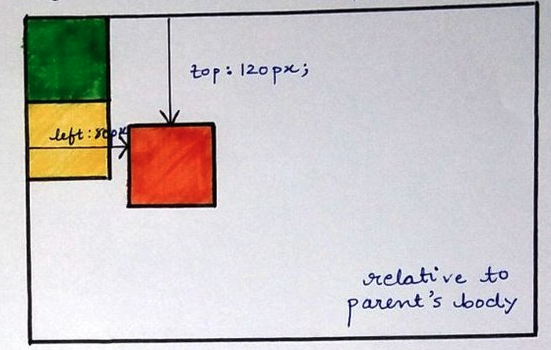 top: 120px;
left: 80px
relative to
parent's body